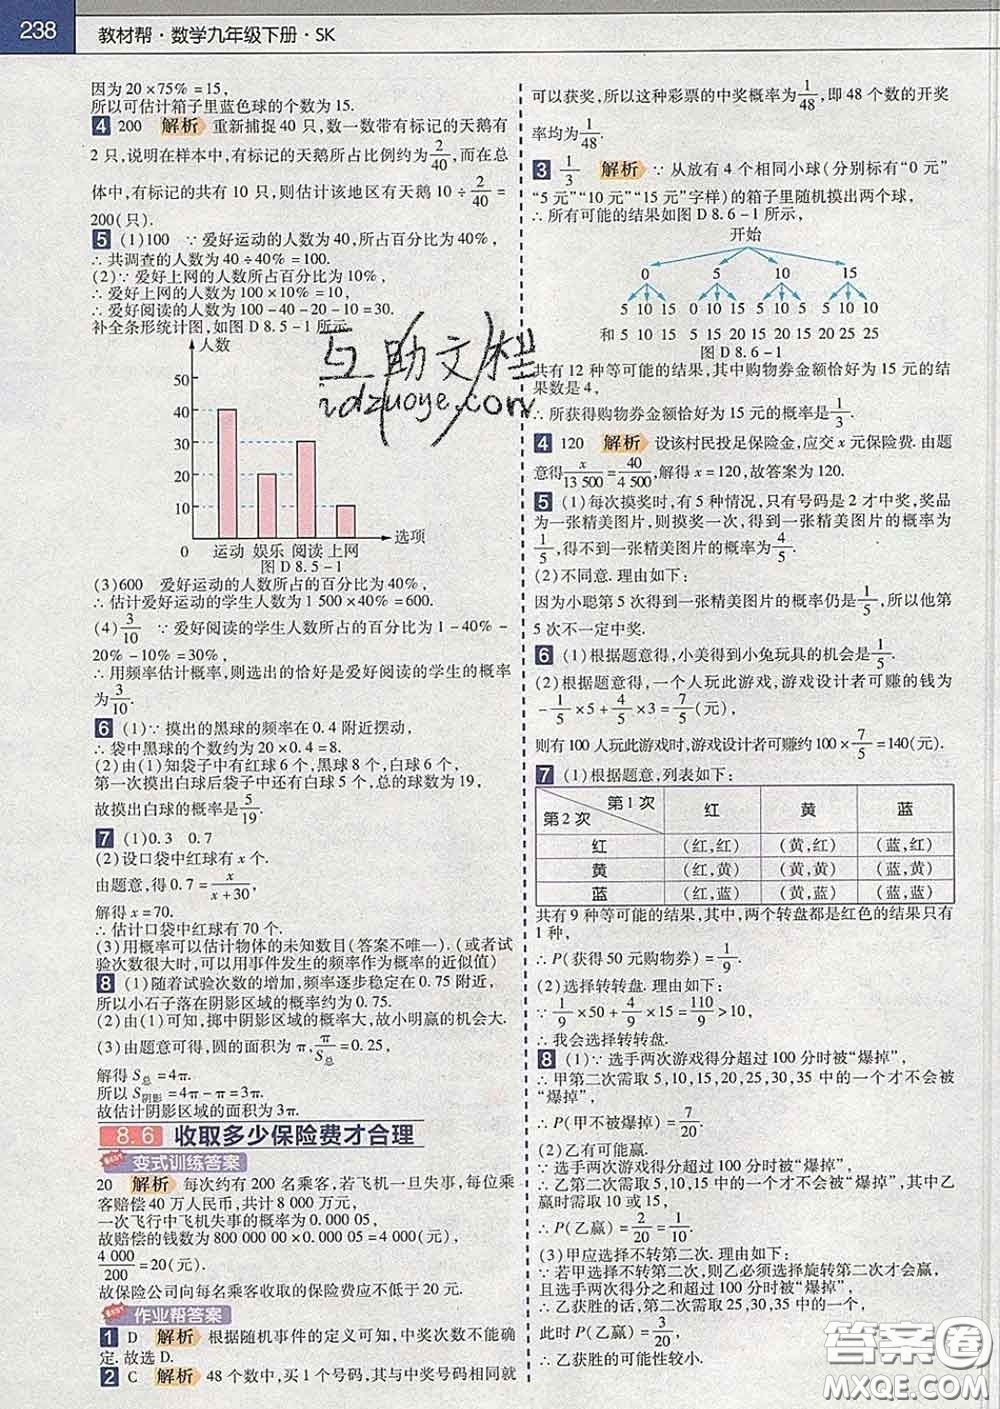 238 教材帮·数学九年级下册·SK
因为 20×75%=15,
所以可估计箱子里蓝色球的个数为 15.
4 200 解析 重新捕捉 40 只,数一数带有标记的天鹅有
2 只,说明在样本中,有标记的天鹅所占比例约为2/40,而在总
体中,有标记的共有 10 只,则估计该地区有天鹅 10÷2/40=
200(只).
5 (1)100 ∵爱好运动的人数为 40,所占百分比为 40%,
∴共调查的人数为 40÷40%=100.
(2)∵爱好上网的人数所占百分比为 10%,
∴爱好上网的人数为 100×10%=10,
∴爱好阅读的人数为 100-40-20-10=30.
补全条形统计图,如图 D 8.5-1 所示
人数
50
40
30
20
10
0 运动 娱乐 阅读 上网 选项
图 D 8.5-1
(3)600 ∵爱好运动的人数所占的百分比为 40%,
∴估计爱好运动的学生人数为 1 500×40%=600.
(4)3/10 ∵爱好阅读的学生人数所占的百分比为 1-40%-
20%-10%=30%,
∴用频率估计概率,则选出的恰好是爱好阅读的学生的概率
为3/10.
6 (1)∵摸出的黑球的频率在 0.4 附近摆动,
∴袋中黑球的个数约为 20×0.4=8.
(2)由(1)知袋子中有红球 6 个,黑球 8 个,白球 6 个.
第一次摸出白球后袋子中还有白球 5 个,总的球数为 19,
故摸出白球的概率是5/19.
7 (1)0.3 0.7
(2)设口袋中红球有 x 个.
由题意,得 0.7=x/(x+30),
解得 x=70.
∴估计口袋中红球有 70 个.
(3)用概率可以估计物体的未知数目(答案不唯一).(或者试
验次数很大时,可以用事件发生的频率作为概率的近似值)
8 (1)随着试验次数的增加,频率逐步稳定在 0.75 附近,
所以小石子落在阴影区域的概率约为 0.75.
(2)由(1)可知,掷中阴影区域的概率大,故小明赢的机会大.
(3)由题意可得,圆的面积为 π,π/S总=0.25,
解得 S总=4π.
所以 S阴影=4π-π=3π.
故估计阴影区域的面积为 3π.
8.6 收取多少保险费才合理
变式训练答案
20 解析 每次约有 200 名乘客,若飞机一旦失事,每位乘
客赔偿 40 万人民币,共计 8 000 万元,
一次飞行中飞机失事的概率为 0.000 05,
故赔偿的钱数为 800 000 00×0.000 05=4 000(元),
4 000/200=20(元).
故保险公司向每名乘客收取的保险费应不低于 20 元.
作业帮答案
1 D 解析 根据随机事件的定义可知,中奖次数不能确
定.故选 D.
2 C 解析 48 个数中,买 1 个号码,其与中奖号码相同就
可以获奖,所以这种彩票的中奖概率为1/48,即 48 个数的开奖
率均为1/48.
3 1/3 解析 ∵从放有 4 个相同小球(分别标有“0 元”
“5 元”“10 元”“15 元”字样)的箱子里随机摸出两个球,
∴所有可能的结果如图 D 8.6-1 所示,
开始
0 5 10 15
5 10 15 0 10 15 0 5 15 0 5 10
和 5 10 15 5 15 20 10 15 25 15 20 25
图 D 8.6-1
共有 12 种等可能的结果,其中购物券金额恰好为 15 元的结
果数是 4,
∴所获得购物券金额恰好为 15 元的概率是1/3.
4 120 解析 设该村民投足保险金,应交 x 元保险费.由题
意得x/13 500=40/4 500,解得 x=120,故答案为 120.
5 (1)每次摸奖时,有 5 种情况,只有号码是 2 才中奖,奖品
为一张精美图片,则摸奖一次,得到一张精美图片的概率为
1/5,得不到一张精美图片的概率为4/5.
(2)不同意.理由如下:
因为小聪第 5 次得到一张精美图片的概率仍是1/5,所以他第
5 次不一定中奖.
6 (1)根据题意得,小美得到小兔玩具的机会是1/5.
(2)根据题意得,一个人玩此游戏,游戏设计者可赚的钱为
-1/5×5+4/5×3=7/5(元),
则有 100 人玩此游戏时,游戏设计者可赚约 100×7/5=140(元).
7 (1)根据题意,列表如下:
第 1 次 第 2 次 红 黄 蓝
红 (红,红) (黄,红) (蓝,红)
黄 (红,黄) (黄,黄) (蓝,黄)
蓝 (红,蓝) (黄,蓝) (蓝,蓝)
共有 9 种等可能的结果,其中,两个转盘都是红色的结果只有
1 种,
∴P(获得 50 元购物券)=1/9.
(2)选择转转盘.理由如下:
∵1/9×50+4/9×15=110/9>10,
∴我会选择转转盘.
8 (1)∵选手两次游戏得分超过 100 分时被“爆掉”,
∴甲第二次需取 5,10,15,20,25,30,35 中的一个才可能
“爆掉”,
∴P(甲不被爆掉)=7/20.
(2)乙有可能赢.
∵选手两次游戏得分超过 100 分时被“爆掉”,
∴乙第二次需取 5,10,15 中的一个才不被“爆掉”,其中乙
赢时需取 10 或 15,
∴P(乙赢)=2/20=1/10.
(3)甲应选择不转第二次.理由如下:
∵若甲选择不转第二次,则乙必须选择旋转第二次才会赢,
且选手两次得分之和超过 100 分时被“爆掉”,
∴乙获胜的话,第二次需取 25,30,35 中的一个,
此时 P(乙赢)=3/20,
∴乙获胜的可能性较小.
互助文档
hdzuoye.com
答案圈
MXQE.COM